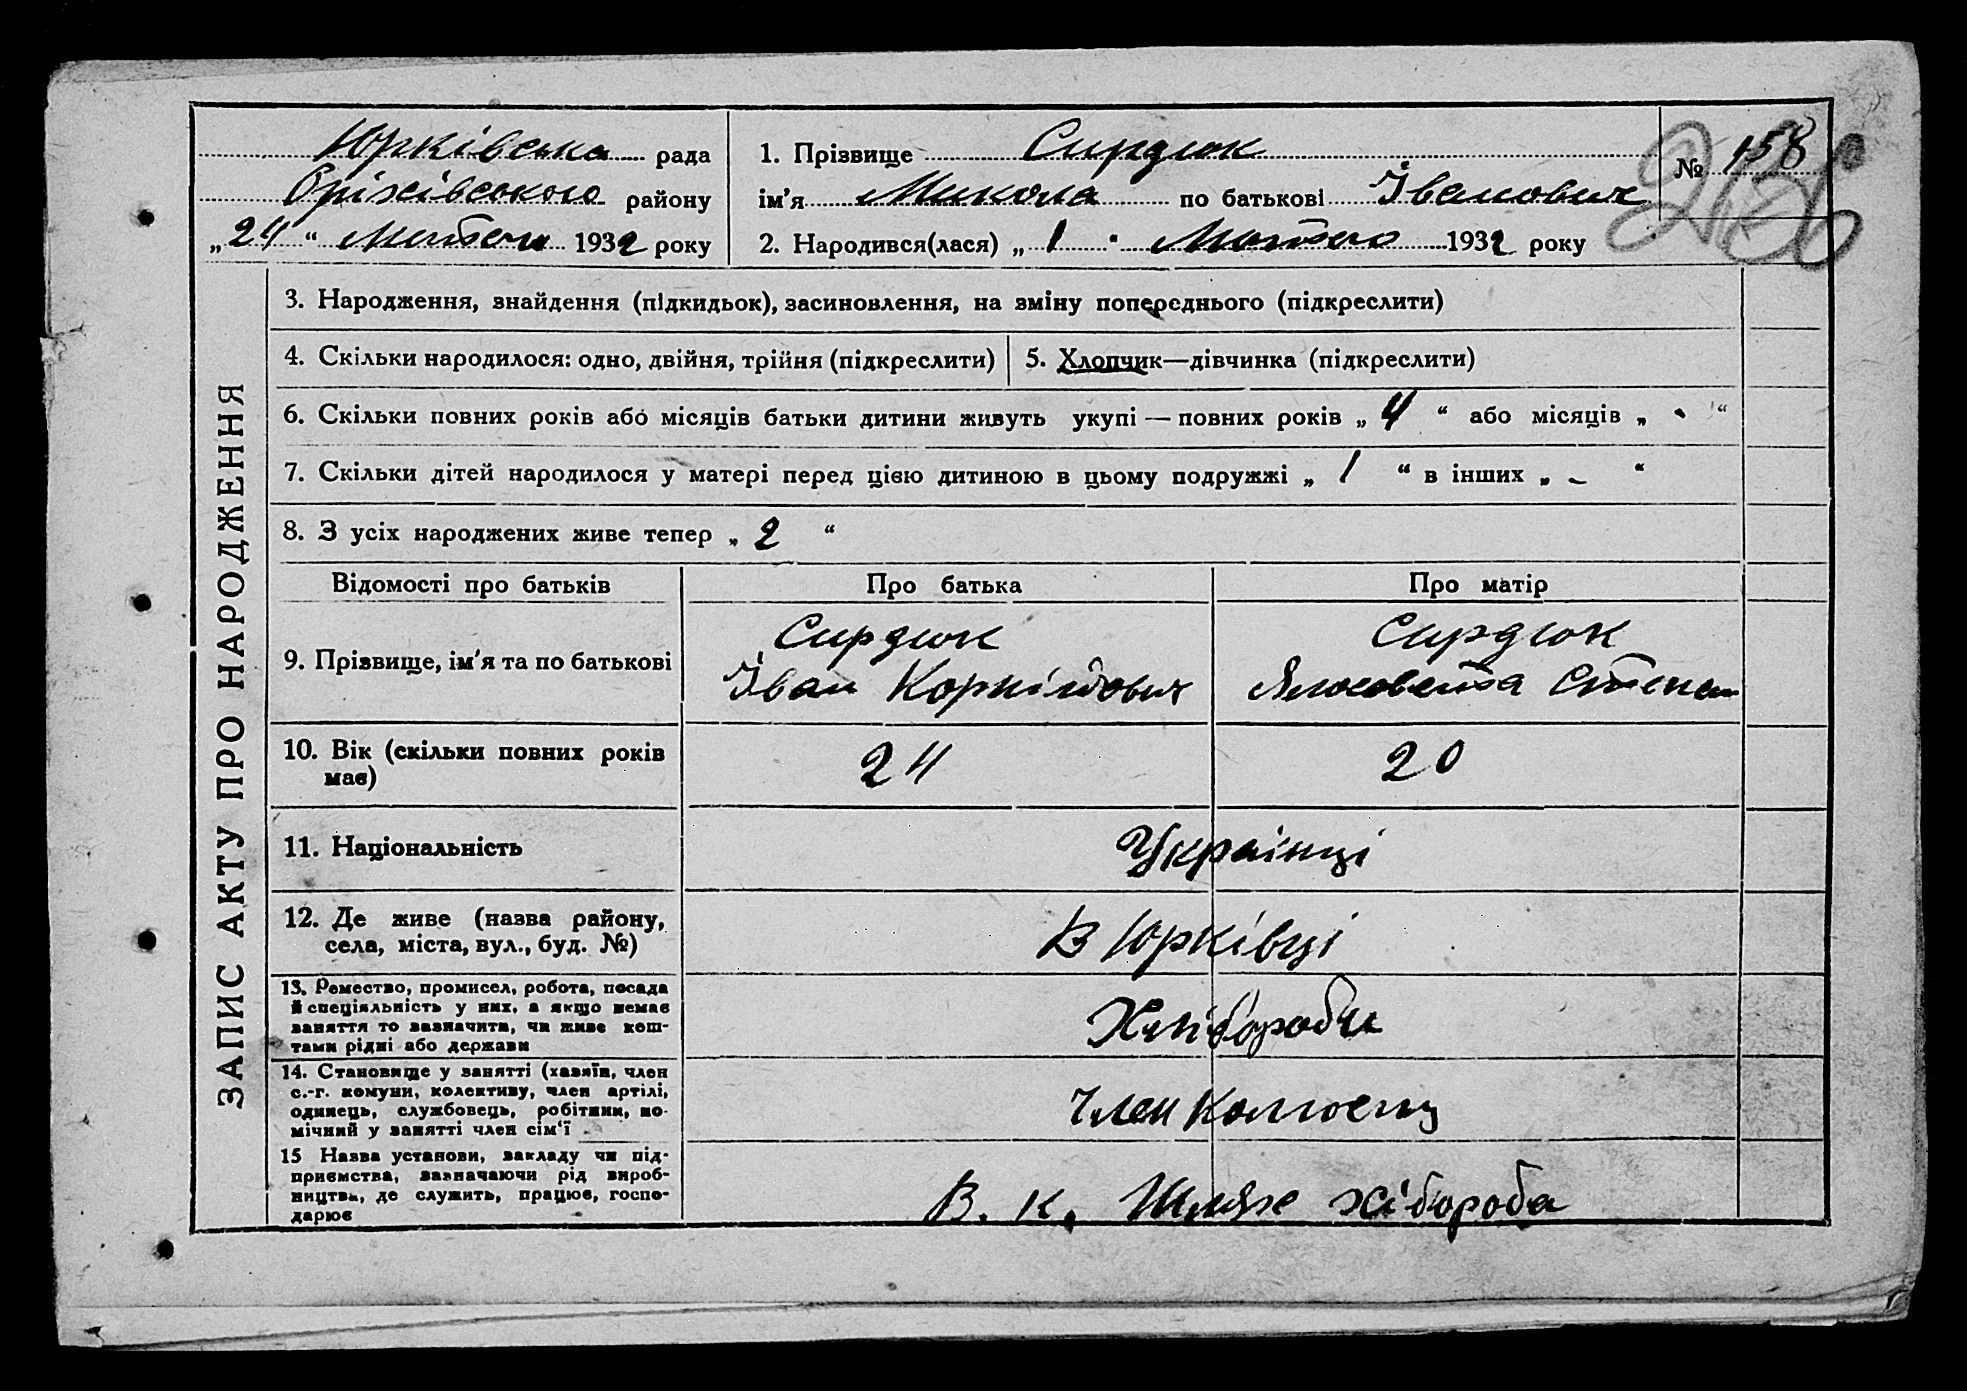 Юрківська рада
Оріхівського району
„24“ Лютого 1932 року
1. Прізвище Сирдюк
ім'я Микола по батькові Іванович
2. Народився(лася) „1“ Лютого 1932 року
№ 158
ЗАПИС АКТУ ПРО НАРОДЖЕННЯ
3. Народження, знайдення (підкидьок), засиновлення, на зміну попереднього (підкреслити)
4. Скільки народилося: одно, двійня, трійня (підкреслити)
5. Хлопчик—дівчинка (підкреслити)
6. Скільки повних років або місяців батьки дитини живуть укупі — повних років „4“ або місяців „-“
7. Скільки дітей народилося у матері перед цією дитиною в цьому подружжі „1“ в інших „-“
8. З усіх народжених живе тепер „2“
Відомості про батьків
Про батька
Про матір
9. Прізвище, ім'я та по батькові
Сирдюк
Іван Корнійович
Сирдюк
Степан
10. Вік (скільки повних років
має)
24
20
11. Національність
Українці
12. Де живе (назва району,
села, міста, вул., буд. №)
В Юрківці
13. Ремество, промисел, робота, посада
й спеціяльність у них, а якщо немає
заняття то зазначити, чи живе кош-
тами рідні або держави
Хлібороби
14. Становище у занятті (хазяїн, член
с.-г. комуни, колективу, член артілі,
одинець, службовець, робітник, по-
мічний у занятті член сім'ї
Член колгоспу
15 Назва установи, закладу чи під-
приємства, зазначаючи рід вироб-
ництва, де служить, працює, госпо-
дарює
В. к. Шлях хібороба